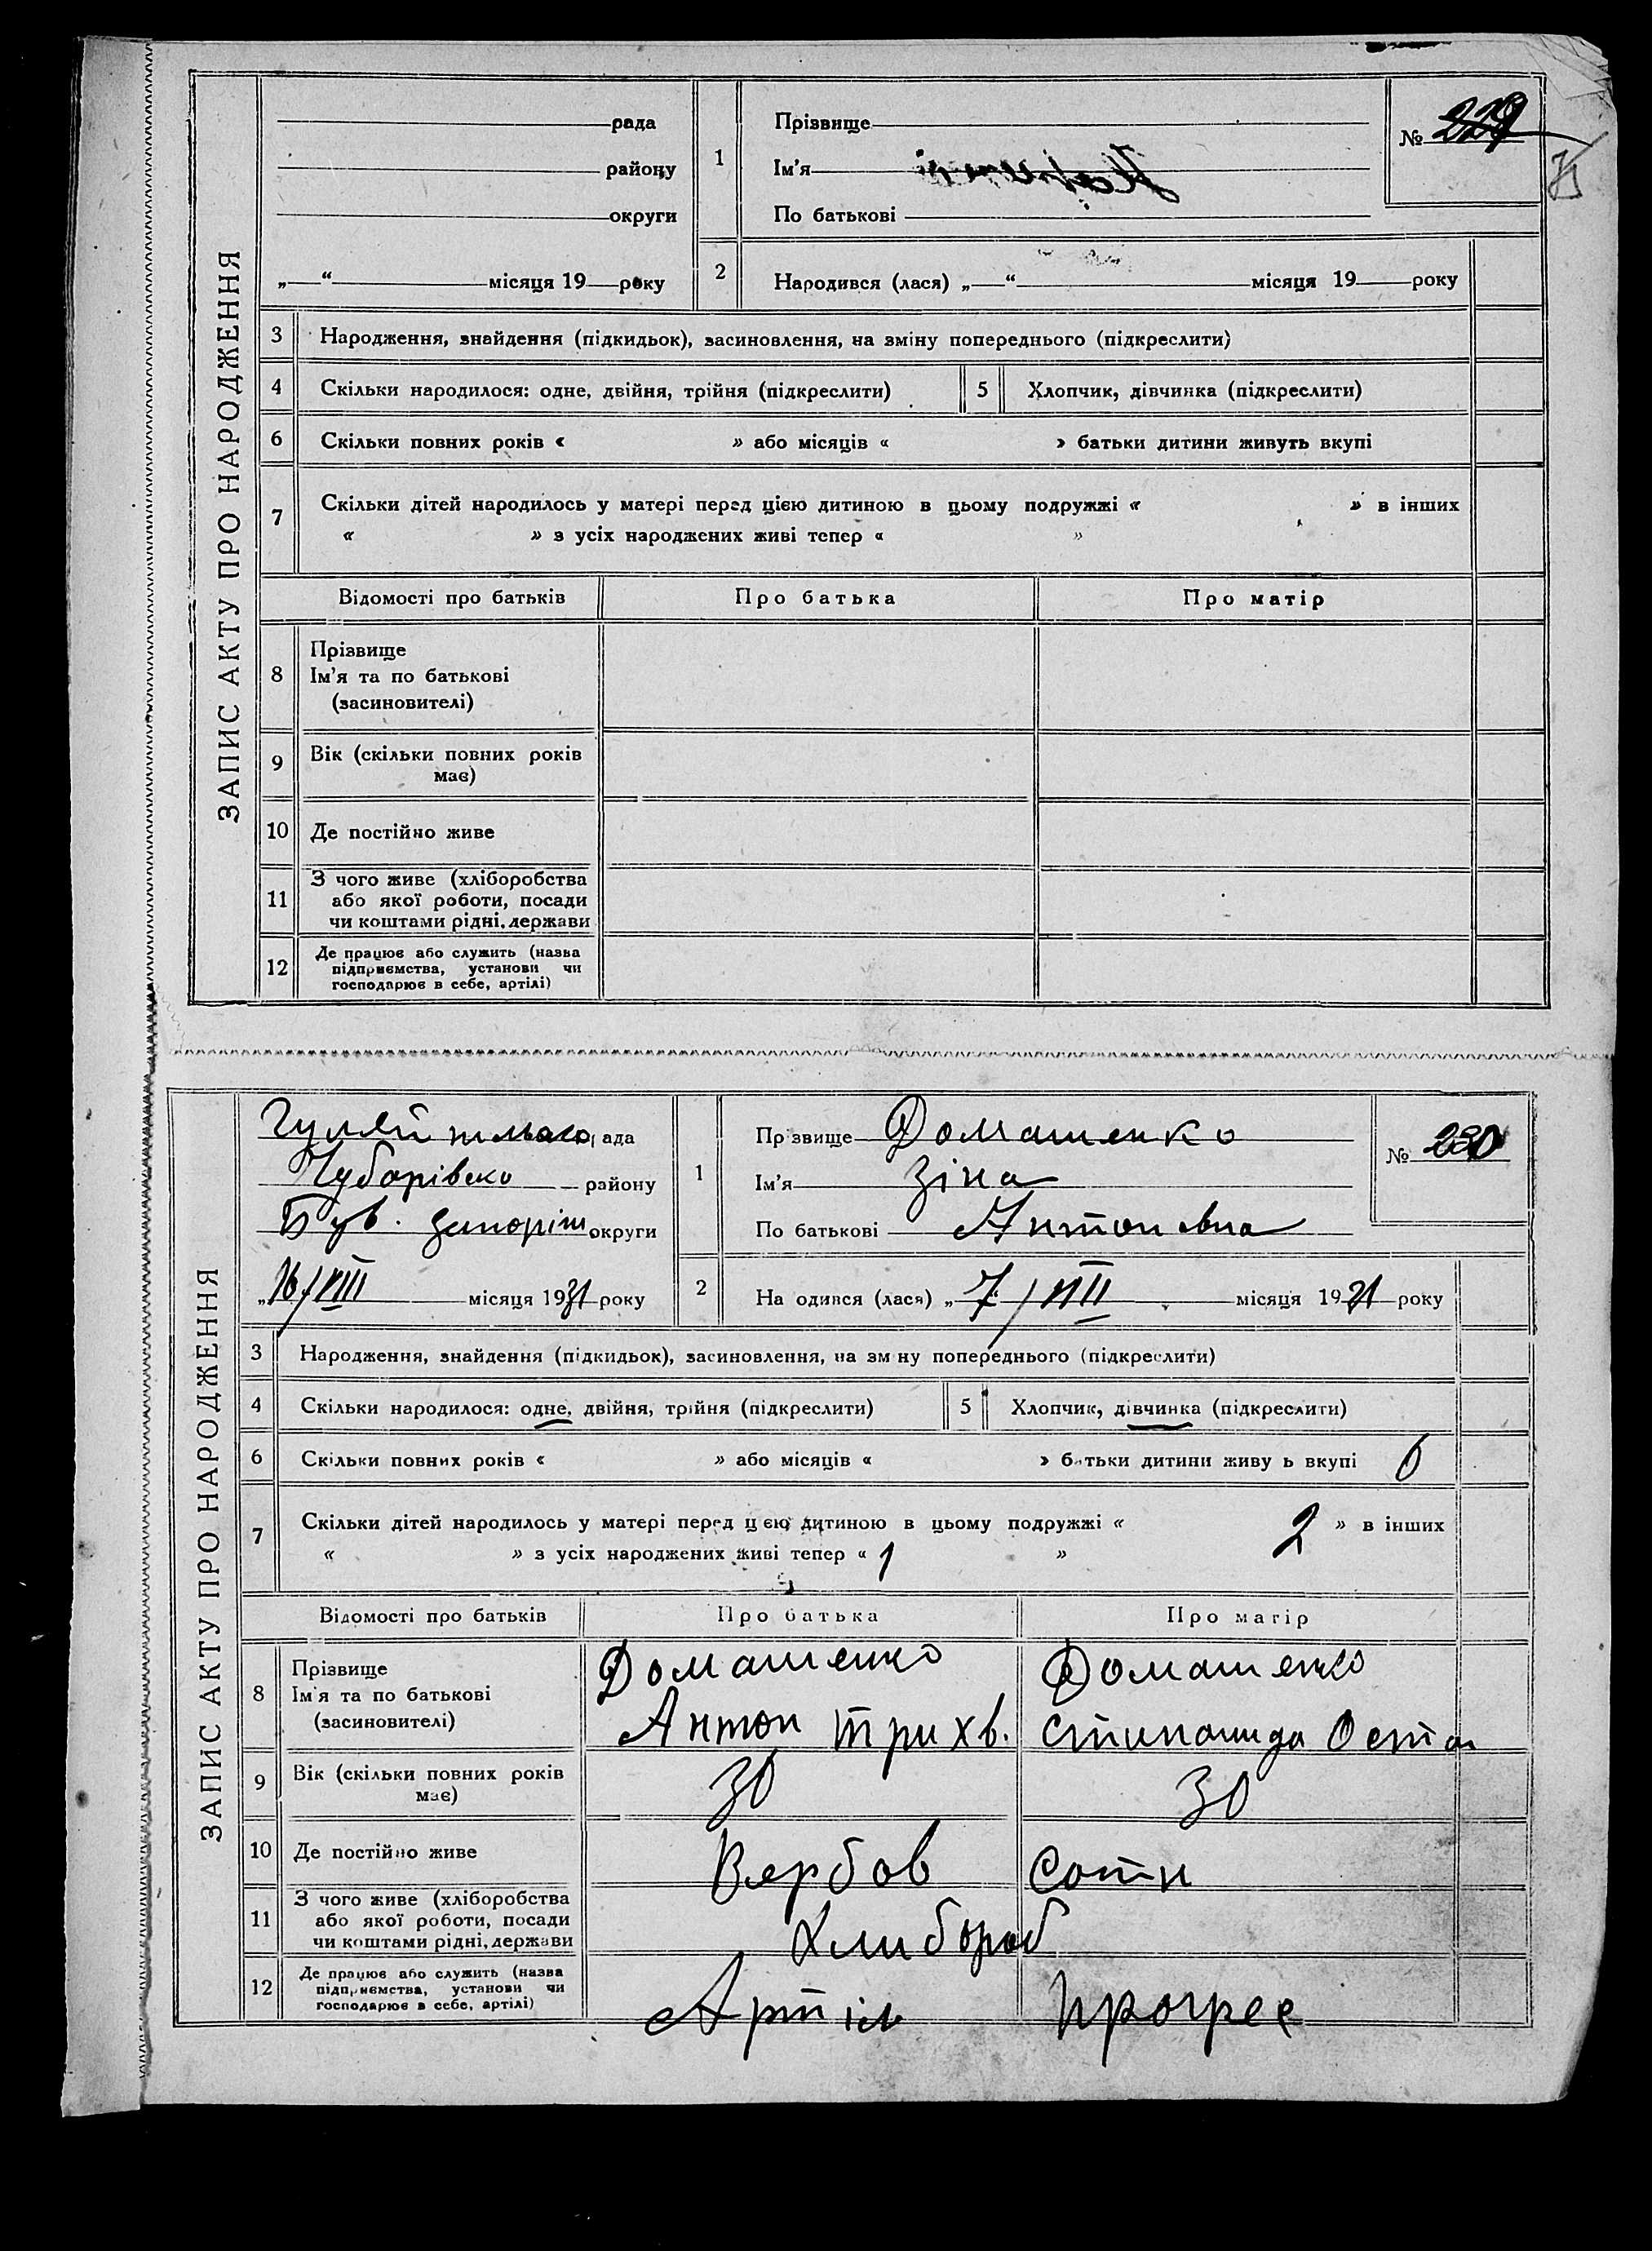 ЗАПИС АКТУ ПРО НАРОДЖЕННЯ
рада
району
округи
„ “ місяця 19 року
1
Прізвище
Ім'я
По батькові
№ 229
2
Народився (лася) „ “ місяця 19 року
3 Народження, знайдення (підкидьок), засиновлення, на зміну попереднього (підкреслити)
4 Скільки народилося: одне, двійня, трійня (підкреслити) 5 Хлопчик, дівчинка (підкреслити)
6 Скільки повних років « » або місяців « » батьки дитини живуть вкупі
7 Скільки дітей народилось у матері перед цією дитиною в цьому подружжі « » в інших
« » з усіх народжених живі тепер « »
Відомості про батьків Про батька Про матір
8 Прізвище
Ім'я та по батькові
(засиновителі)
9 Вік (скільки повних років
має)
10 Де постійно живе
11 З чого живе (хліборобства
або якої роботи, посади
чи коштами рідні, держави
12 Де працює або служить (назва
підприємства, установи чи
господарює в себе, артілі)
ЗАПИС АКТУ ПРО НАРОДЖЕННЯ
Гуляйпльско рада
Чубарівско району
округи
„16/VIII місяця 1931 року
1
Прізвище Домашенко
Ім'я Зіна
По батькові Антоновна
№ 230
2
Народився (лася) „7/VIII місяця 1931 року
3 Народження, знайдення (підкидьок), засиновлення, на зміну попереднього (підкреслити)
4 Скільки народилося: одне, двійня, трійня (підкреслити) 5 Хлопчик, дівчинка (підкреслити)
6 Скільки повних років « » або місяців « » батьки дитини живуть вкупі 6
7 Скільки дітей народилось у матері перед цією дитиною в цьому подружжі « 2 » в інших
« » з усіх народжених живі тепер « 1 »
Відомості про батьків Про батька Про матір
8 Прізвище
Ім'я та по батькові
(засиновителі)
Домашенко Домашенко
Антон Трихв. Стипанида Остап
9 Вік (скільки повних років
має)
30 30
10 Де постійно живе Вербов Сотн
11 З чого живе (хліборобства
або якої роботи, посади
чи коштами рідні, держави
Хлибороб
12 Де працює або служить (назва
підприємства, установи чи
господарює в себе, артілі)
Артіль Прогрес